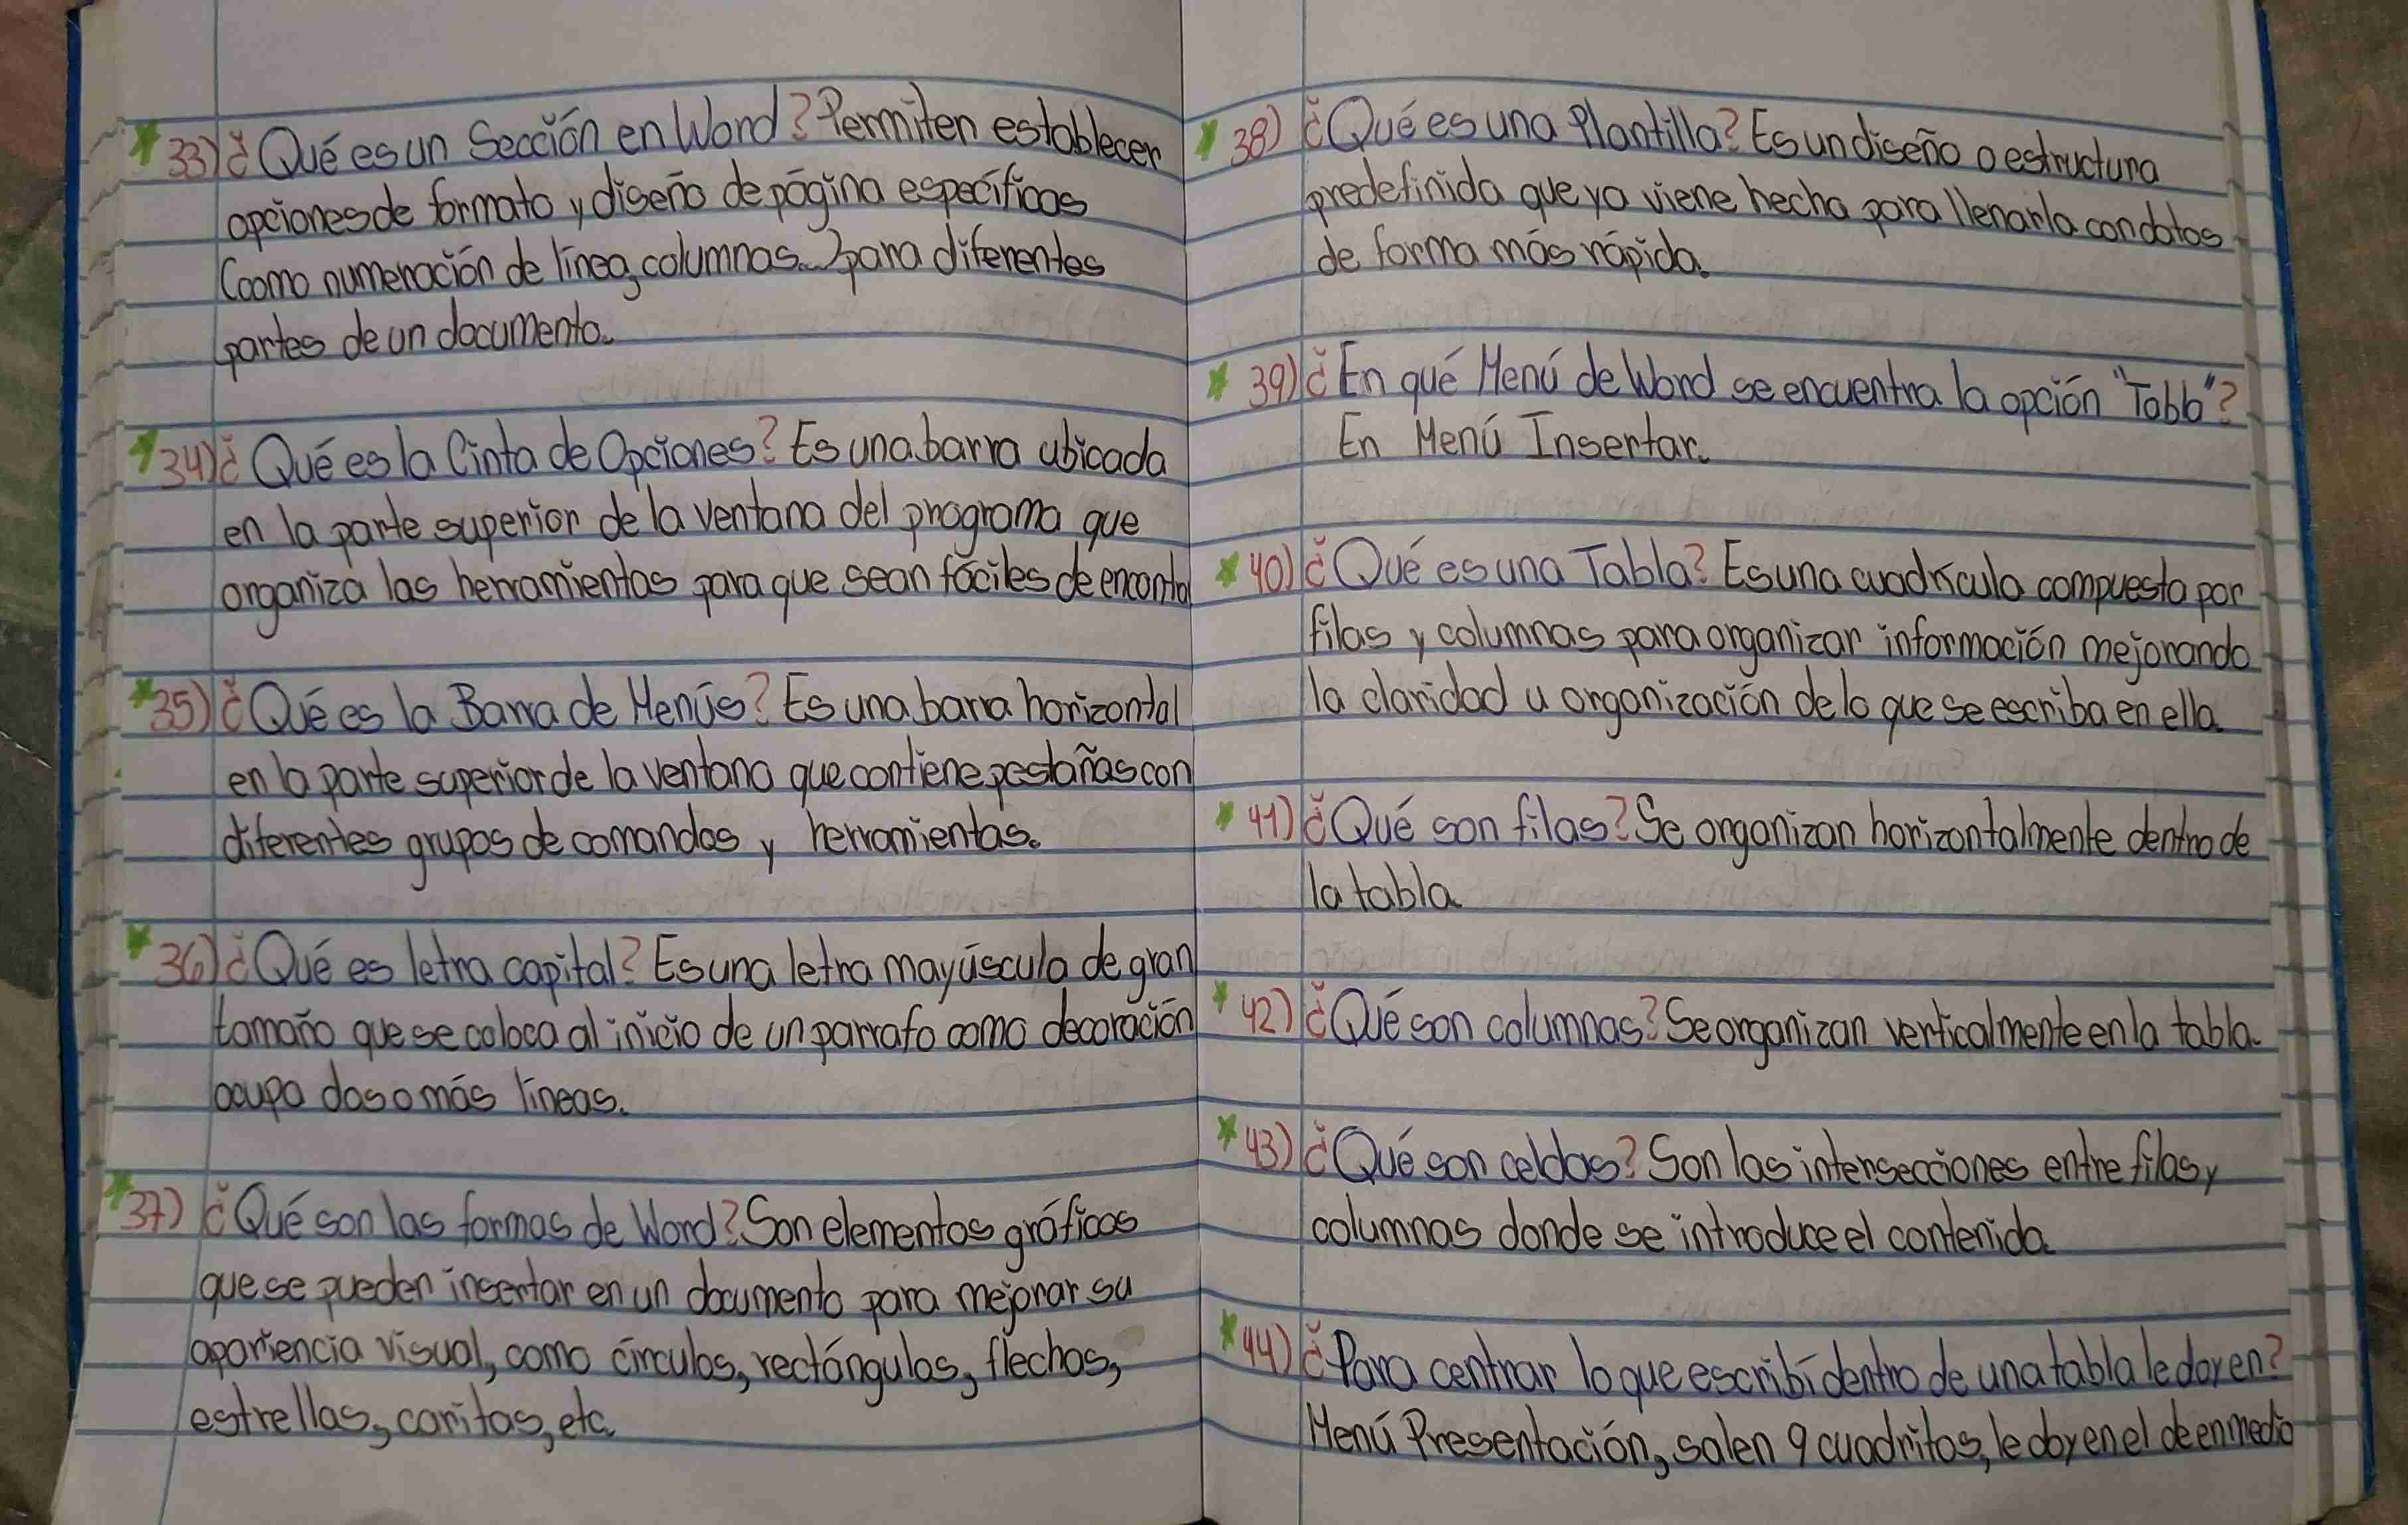 33) ¿Qué es un Sección en Word? Permiten establecer
opciones de formato y diseño de página específicas
(como numeración de línea, columnas...) para diferentes
partes de un documento.
34) ¿Qué es la Cinta de Opciones? Es una barra ubicada
en la parte superior de la ventana del programa que
organiza las herramientas para que sean fáciles de
35) ¿Qué es la Barra de Menús? Es una barra horizontal
en la parte superior de la ventana que contiene pestañas con
diferentes grupos de comandos y herramientas.
36) ¿Qué es letra capital? Es una letra mayúscula de gran
tamaño que se coloca al inicio de un parrafo como decoración
ocupa dos o más líneas.
37) ¿Qué son las formas de Word? Son elementos gráficos
que se pueden insertar en un documento para mejorar su
apariencia visual, como círculos, rectángulos, flechas,
estrellas, caritas, etc.
38) ¿Qué es una Plantilla? Es un diseño o estructura
predefinida que ya viene hecha para llenarla con datos
de forma más rápida.
39) ¿En qué Menú de Word se encuentra la opción "Tabla"?
En Menú Insertar.
40) ¿Qué es una Tabla? Es una cuadrícula compuesta por
filas y columnas para organizar información mejorando
la claridad u organización de lo que se escriba en ella.
41) ¿Qué son filas? Se organizan horizontalmente dentro de
la tabla.
42) ¿Qué son columnas? Se organizan verticalmente en la tabla.
43) ¿Qué son celdas? Son las intersecciones entre filas y
columnas donde se introduce el contenido.
44) ¿Para centrar lo que escribí dentro de una tabla le doy en?
Menú Presentación, salen 9 cuadritos, le doy en el de en medio